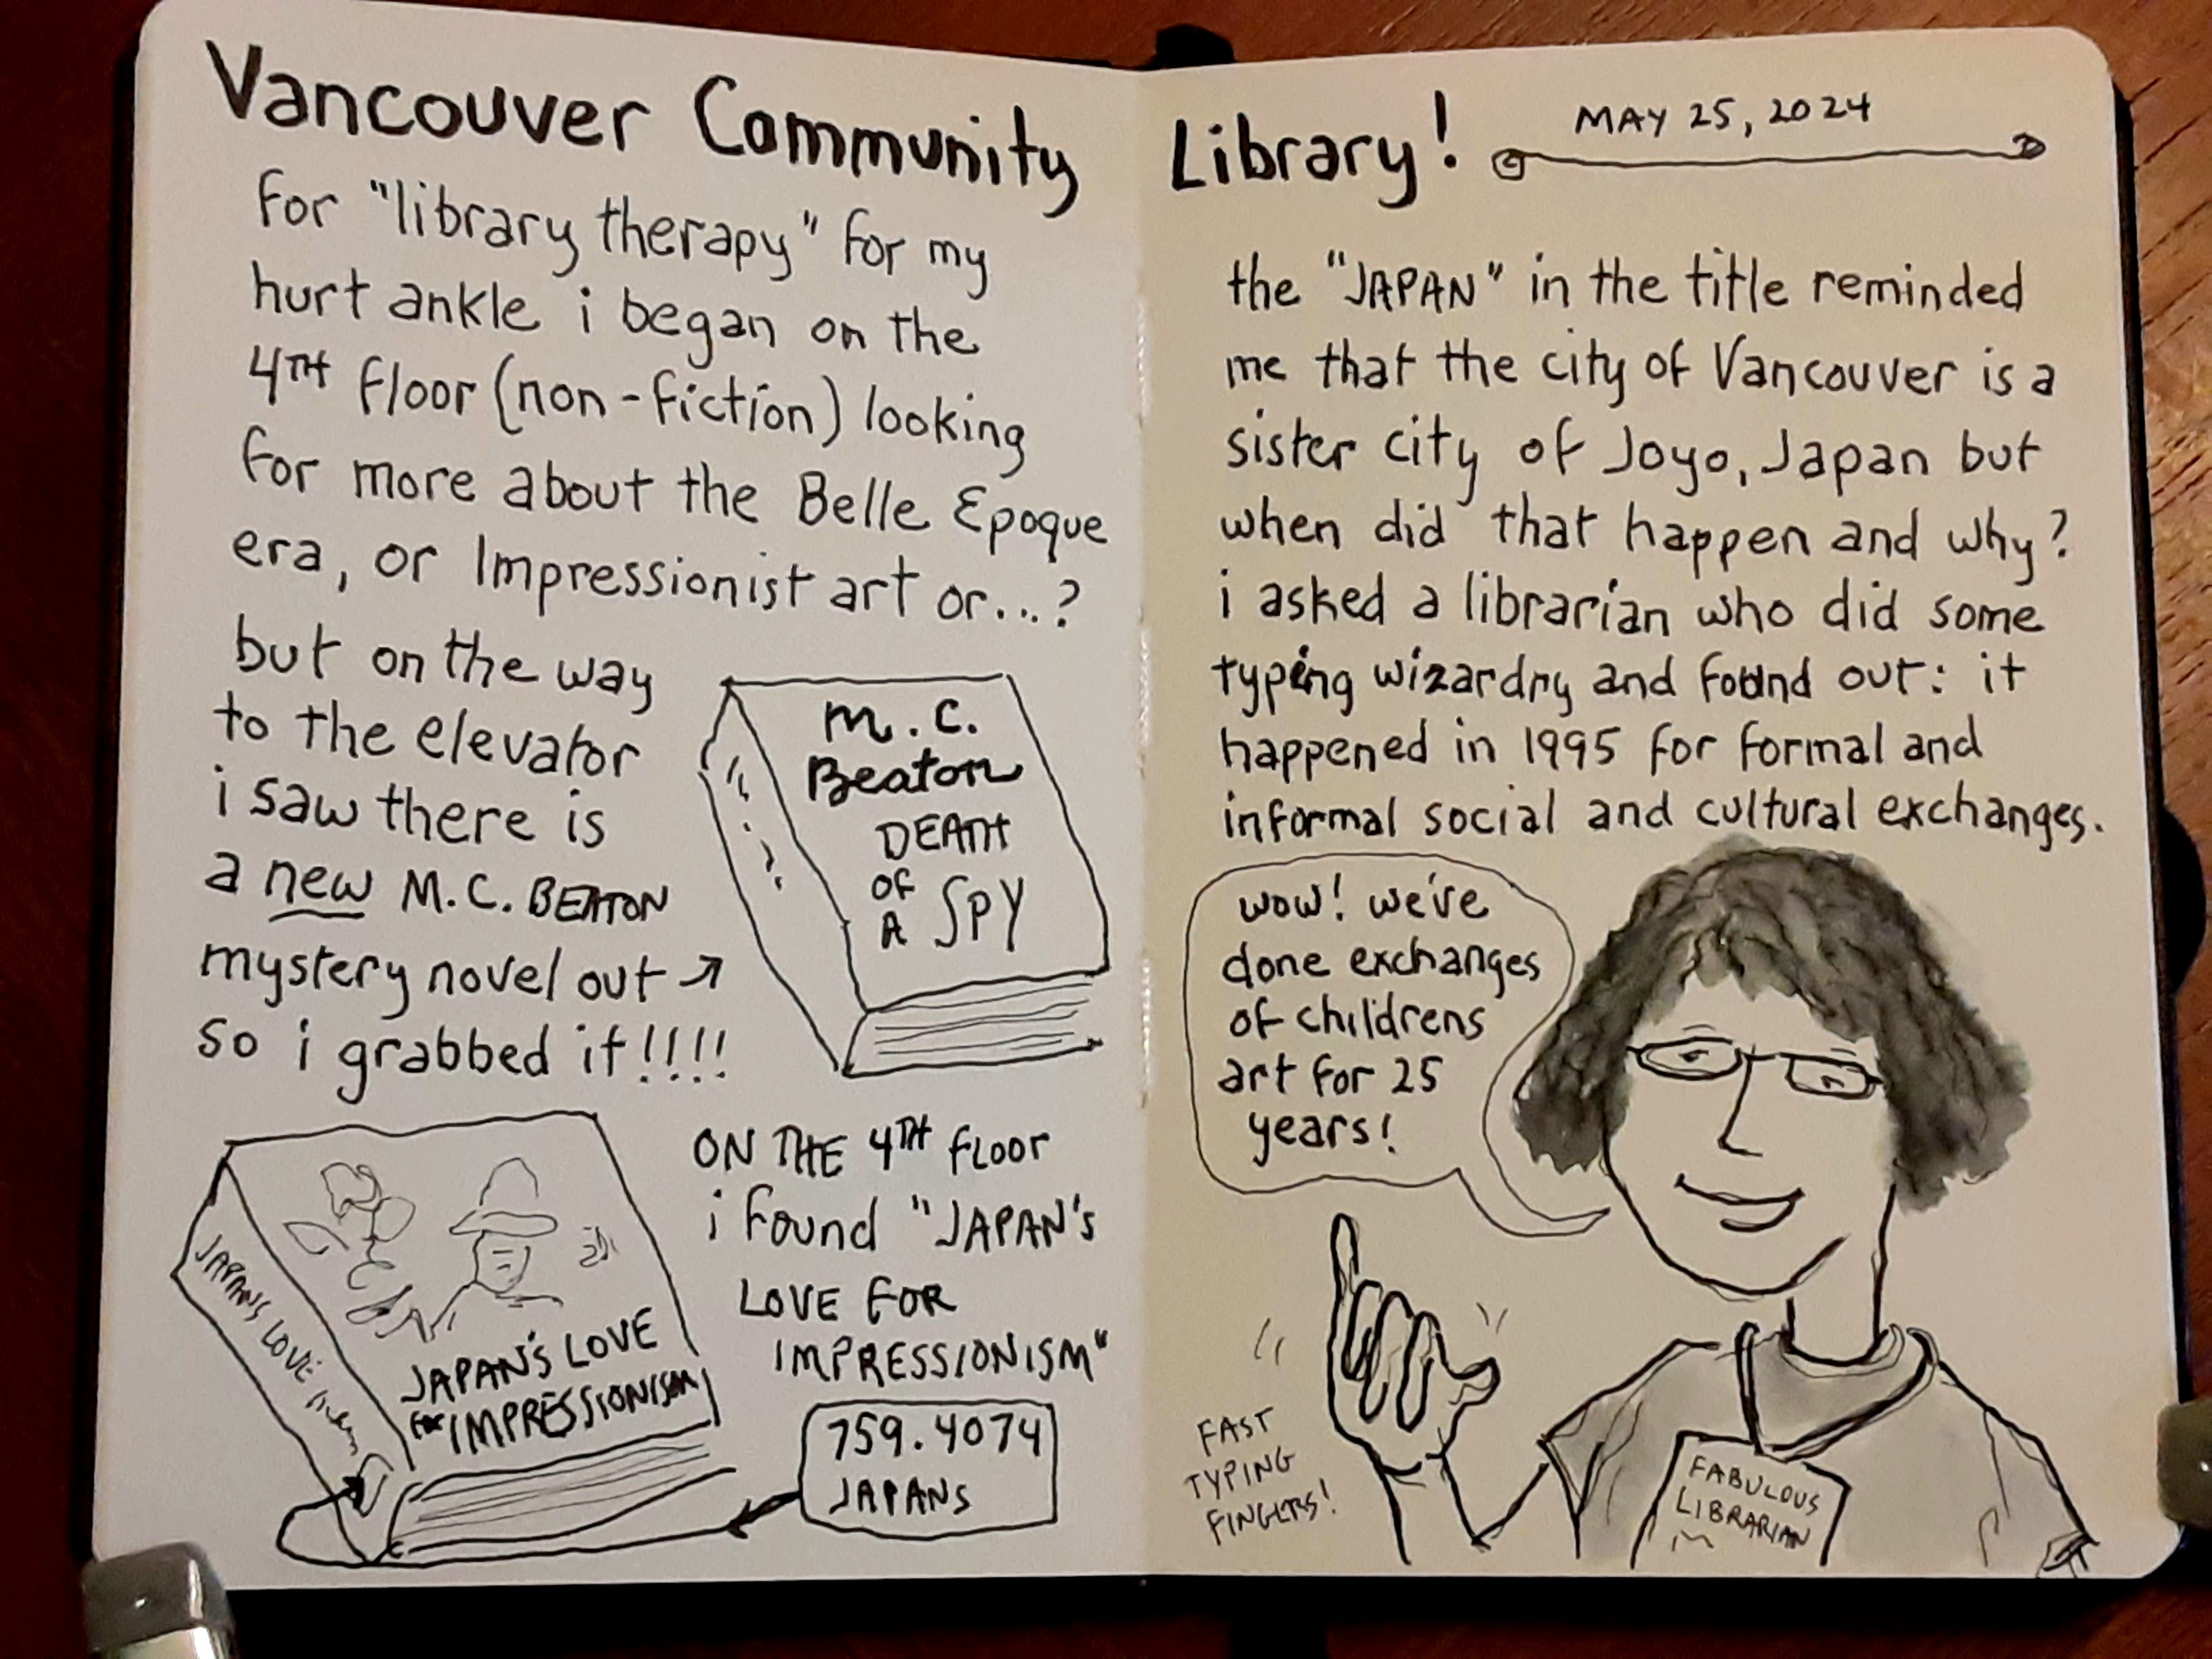 Vancouver Community Library!
MAY 25, 2024
for "library therapy" for my
hurt ankle i began on the
4TH floor (non-fiction) looking
for more about the Belle Epoque
era, or Impressionist art or...?
but on the way
to the elevator
i saw there is
a new M.C. BEATON
mystery novel out →
so i grabbed it!!!!
M.C.
Beaton
DEATH
OF
A SPY
JAPANS LOVE
JAPAN'S LOVE
FOR IMPRESSIONISM
ON THE 4TH FLOOR
i found "JAPAN'S
LOVE FOR
IMPRESSIONISM"
759.4074
JAPANS
the "JAPAN" in the title reminded
me that the city of Vancouver is a
sister city of Joyo, Japan but
when did that happen and why?
i asked a librarian who did some
typing wizardry and found out: it
happened in 1995 for formal and
informal social and cultural exchanges.
wow! we've
done exchanges
of childrens
art for 25
years!
FAST
TYPING
FINGERS!
FABULOUS
LIBRARIAN